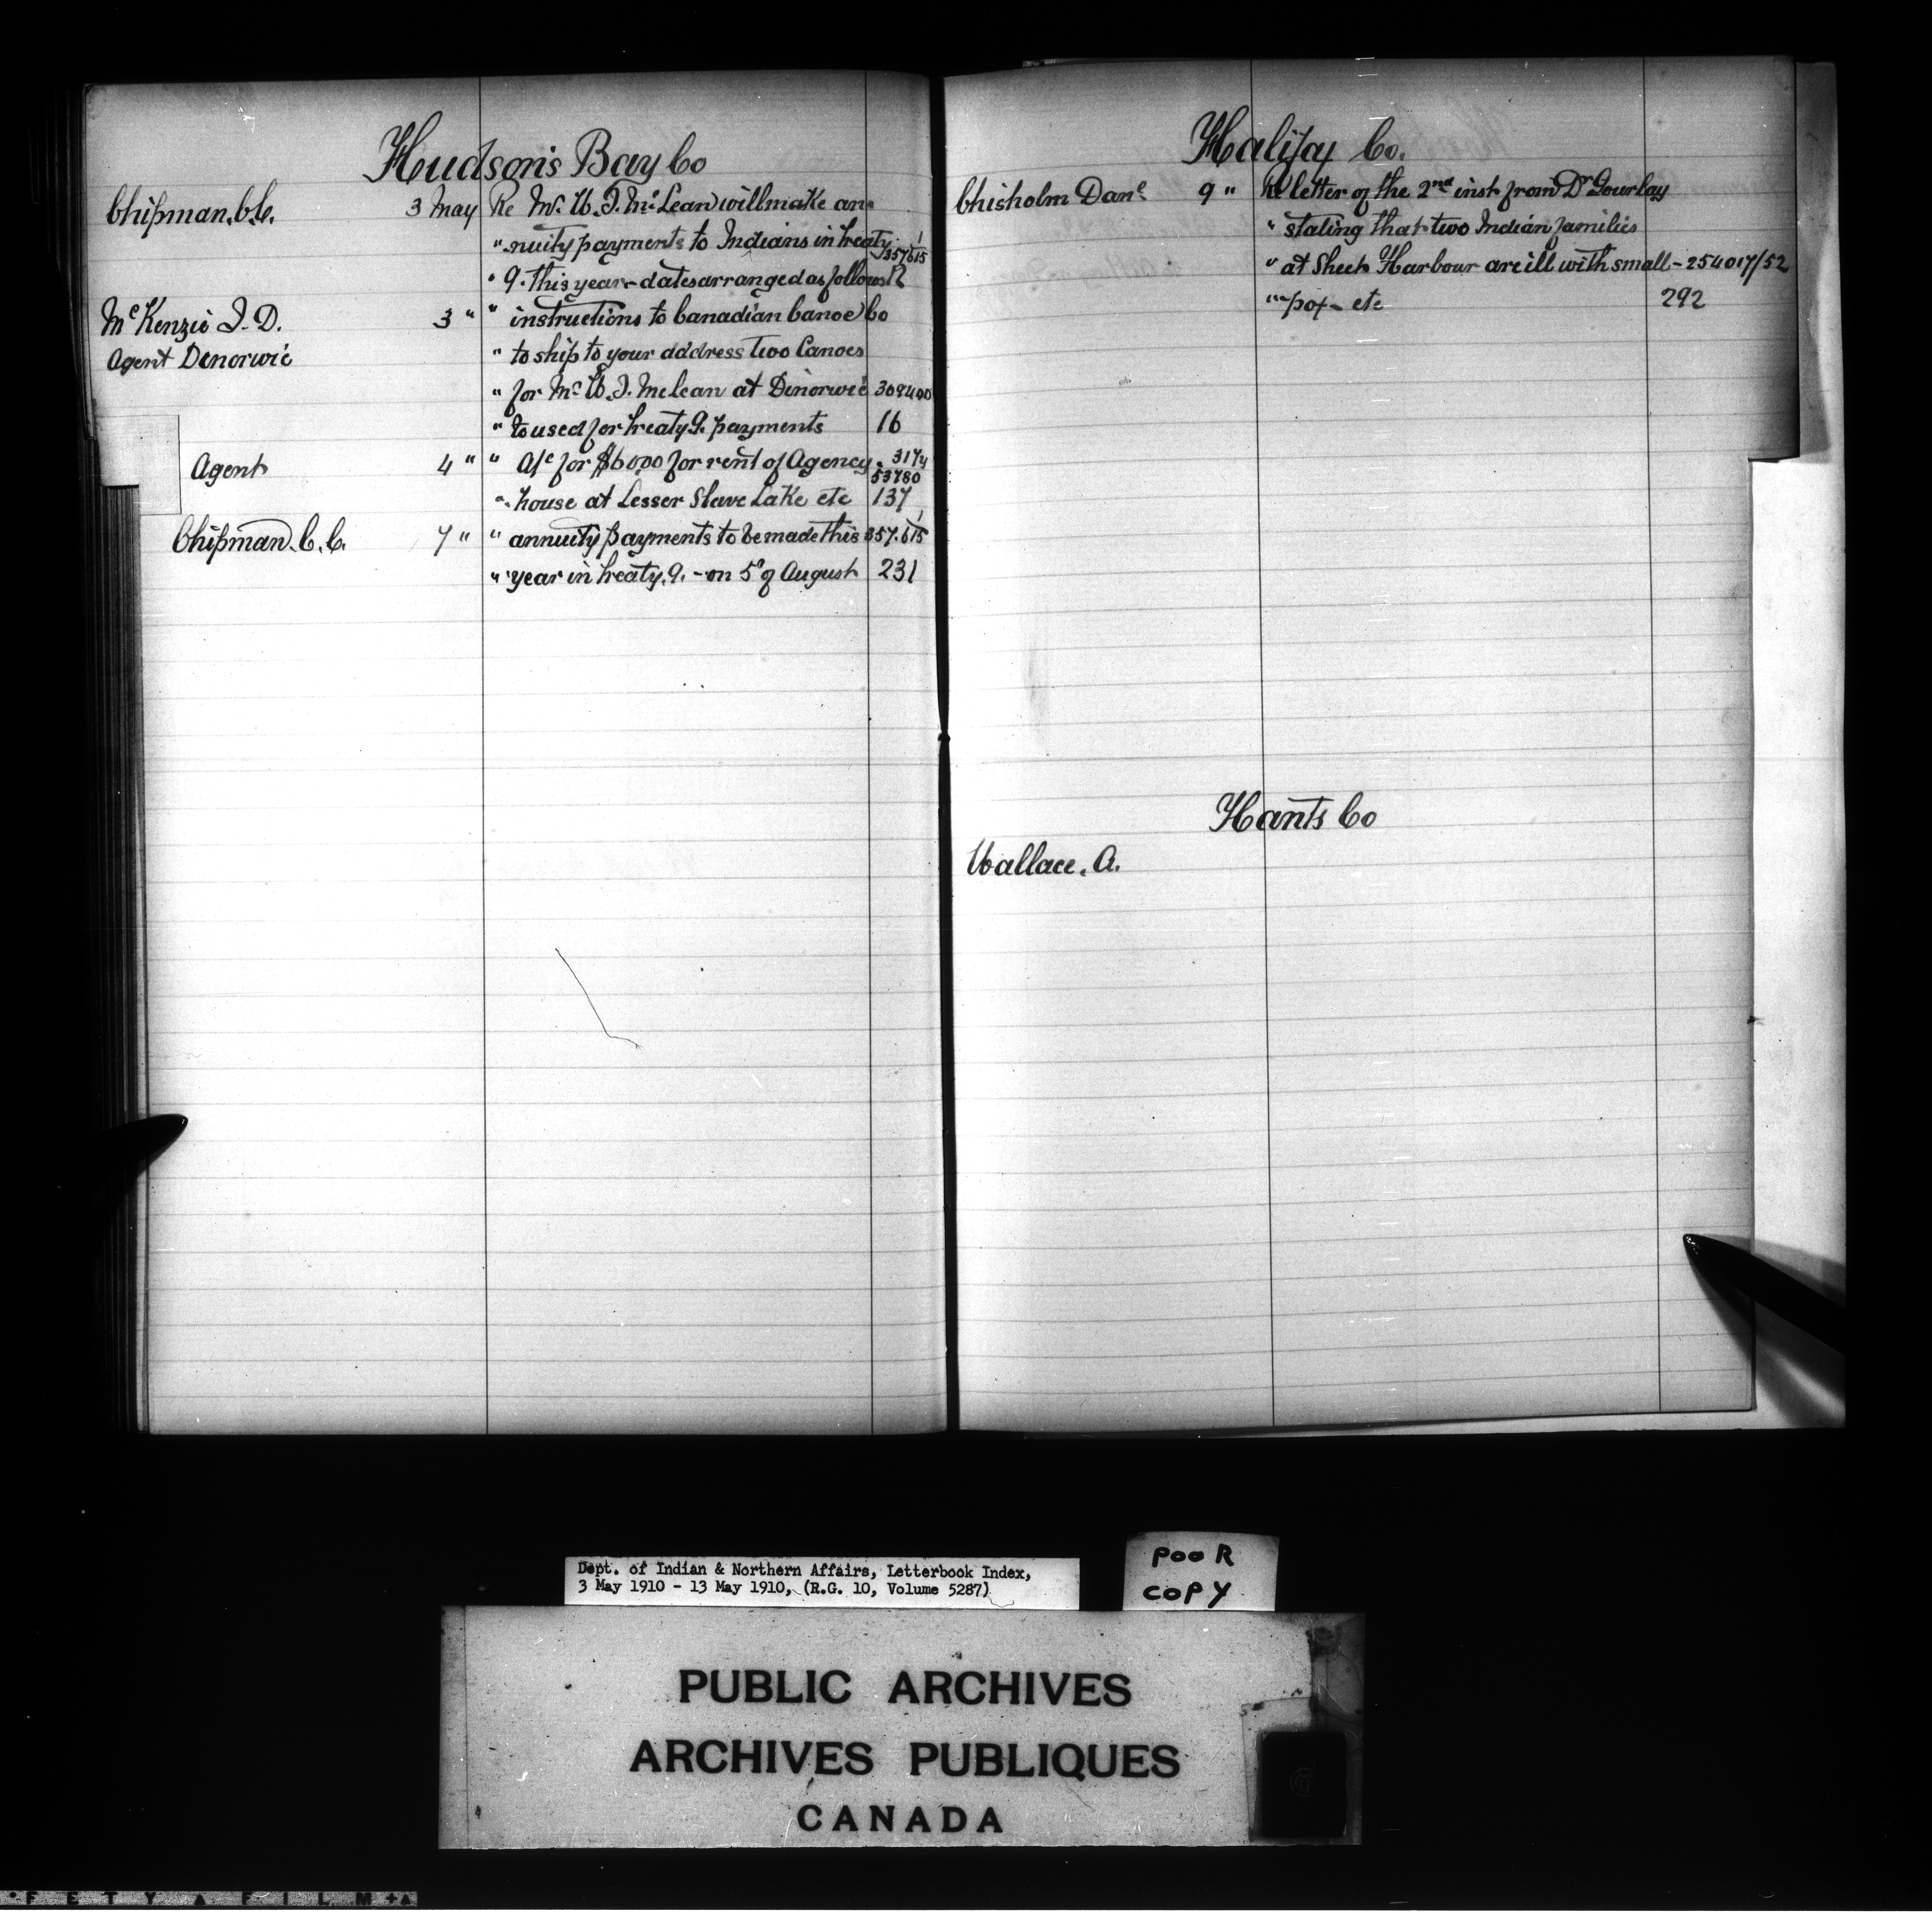 Hudson's Bay Co
Chipman. C.C. 3 May Re Mr. W. J. McLean will make an-
" nuity payments to Indians in treaty 1/357615
" 9. this year - dates arranged as follows 12
McKenzie J. D. 3 " " instructions to Canadian Canoe Co
Agent Denorwic " to ship to your address two Canoes
" for Mr. W. J. McLean at Dinorwic 309400
" to used for treaty 9. payments 16
Agent 4 " " A/c for $6000 for rent of Agency 3174/53780
" house at Lesser Slave Lake etc 137
Chipman. C. C. 7 " " annuity payments to be made this 1/357.615
" year in treaty. 9. - on 5th of August 231
Halifax Co.
Chisholm Danl 9 " Re letter of the 2nd inst from Dr Gourlay
" stating that two Indian families
" at Sheet Harbour are ill with small- 254017/52
" -pox - etc 292
Hants Co
Wallace. A.
Dept. of Indian & Northern Affairs, Letterbook Index,
3 May 1910 - 13 May 1910, (R.G. 10, Volume 5287)
POOR
COPY
PUBLIC ARCHIVES
ARCHIVES PUBLIQUES
CANADA